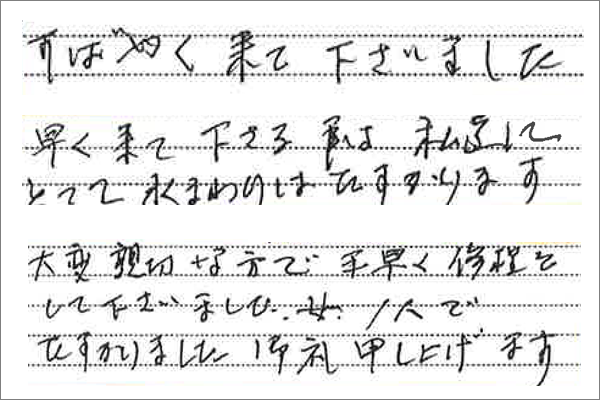 すばやく来て下さいました
早く来て下さる事は私達に
とって水まわりはたすかります
大変親切な方で手早く修理を
して下さいました。女1人で
たすかりました御礼申し上げます